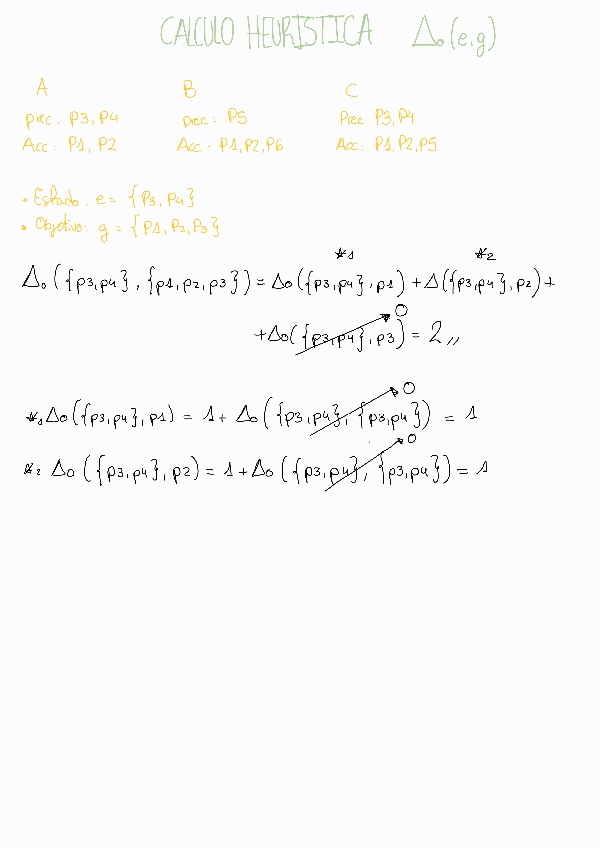 CALCULO HEURISTICA Δ₀(e,g)
A B C
prec: P3, P4 prec: P5 Prec P3, P4
Acc: P1, P2 Acc: P1, P2, P6 Acc: P1, P2, P5
• Estado: e = {P3, P4}
• Objetivo: g = {P1, P2, P3}
*1 *2
Δ₀({p3,p4}, {p1,p2,p3}) = Δ₀({p3,p4}, p1) + Δ({p3,p4}, p2) +
0
+Δ₀({p3,p4}, p3) = 2,,
0
*1 Δ₀({p3,p4}, p1) = 1 + Δ₀({p3,p4}, {p3,p4}) = 1
0
*2 Δ₀({p3,p4}, p2) = 1 + Δ₀({p3,p4}, {p3,p4}) = 1